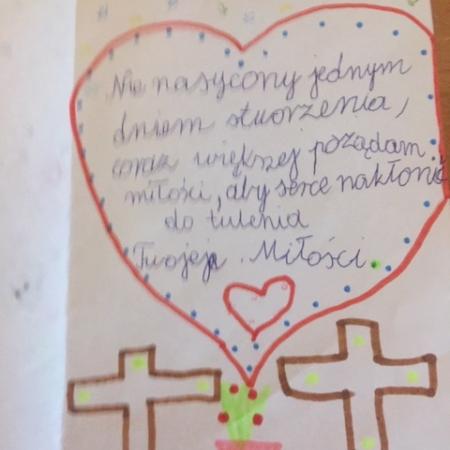 Nie nasycony jednym
dniem stworzenia,
coraz większej pożądam
miłości, aby serce nakłonić
do tulenia
Twojej. Miłości.